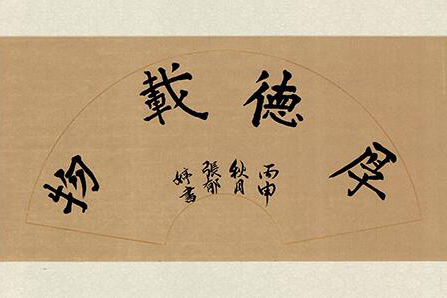 厚德載物
丙申
秋月
張郁
婷書